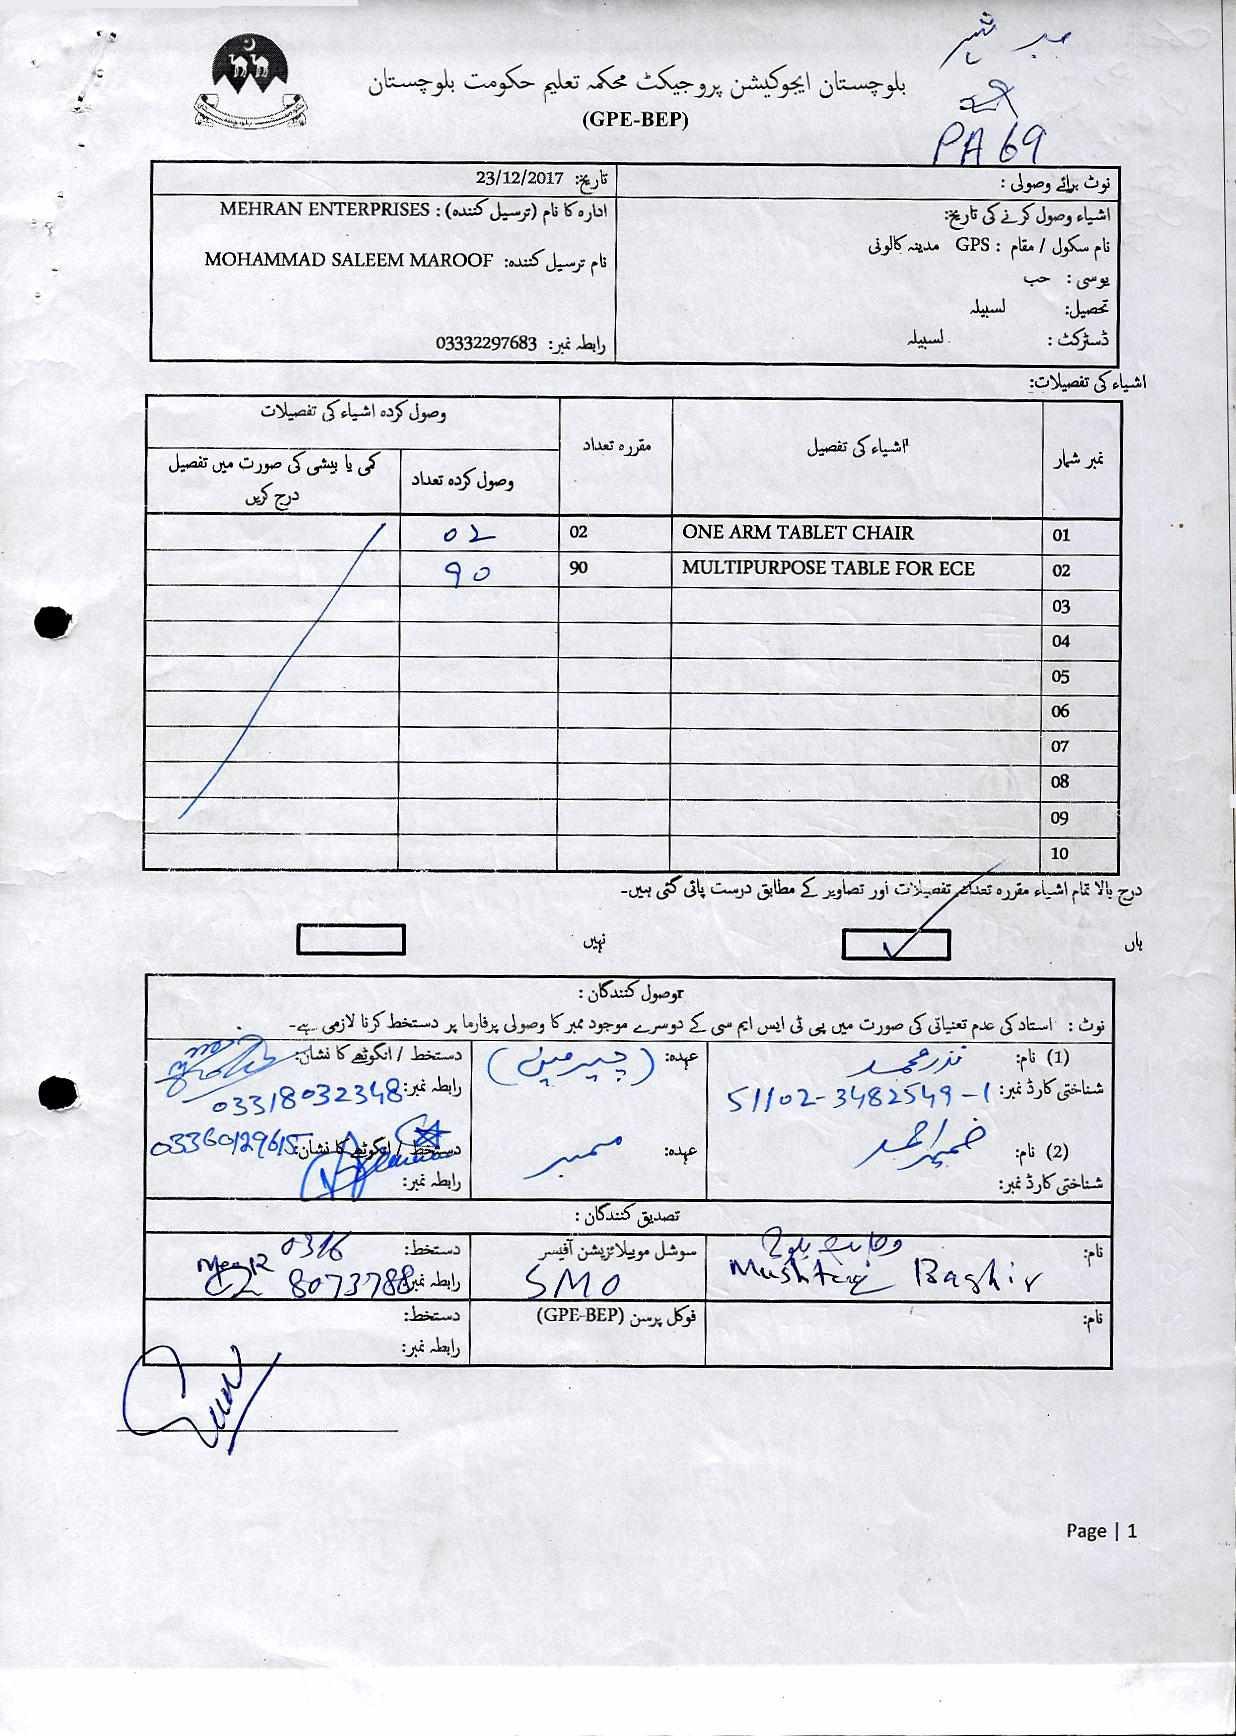 بلوچستان ایجوکیشن پروجیکٹ محکمہ تعلیم حکومت بلوچستان
(GPE-BEP)
PA 69
نوٹ برائے وصولی :
تاریخ: 23/12/2017
اشیاء وصول کرنے کی تاریخ:
ادارہ کا نام (ترسیل کنندہ) : MEHRAN ENTERPRISES
نام سکول / مقام : GPS مدینہ کالونی
نام ترسیل کنندہ: MOHAMMAD SALEEM MAROOF
یوسی : حب
تحصیل: لسبیلہ
ڈسٹرکٹ : لسبیلہ
رابطہ نمبر: 03332297683
اشیاء کی تفصیلات:
نمبر شمار
اشیاء کی تفصیل
مقررہ تعداد
وصول کردہ اشیاء کی تفصیلات
وصول کردہ تعداد
کمی یا بیشی کی صورت میں تفصیل
درج کریں
01 ONE ARM TABLET CHAIR 02 02
02 MULTIPURPOSE TABLE FOR ECE 90 90
03
04
05
06
07
08
09
10
درج بالا تمام اشیاء مقررہ تعداد، تفصیلات اور تصاویر کے مطابق درست پائی گئی ہیں۔
ہاں
نہیں
وصول کنندگان :
نوٹ : استاد کی عدم تعنیاتی کی صورت میں پی ٹی ایس ایم سی کے دوسرے موجود ممبر کا وصولی پرفارما پر دستخط کرنا لازمی ہے۔
(1) نام: نذر محمد
عہدہ: (چیرمین)
دستخط / انگوٹھے کا نشان:
شناختی کارڈ نمبر: 51102-3482549-1
رابطہ نمبر: 03318032348
(2) نام: ضمیر احمد
عہدہ: ممبر
دستخط / انگوٹھے کا نشان: 03360129615
شناختی کارڈ نمبر:
رابطہ نمبر:
تصدیق کنندگان :
نام:
Mushtaq Baghir
سوشل موبیلائزیشن آفیسر
SMO
دستخط: 0316
رابطہ نمبر: 8073788
نام:
فوکل پرسن (GPE-BEP)
دستخط:
رابطہ نمبر:
Page | 1